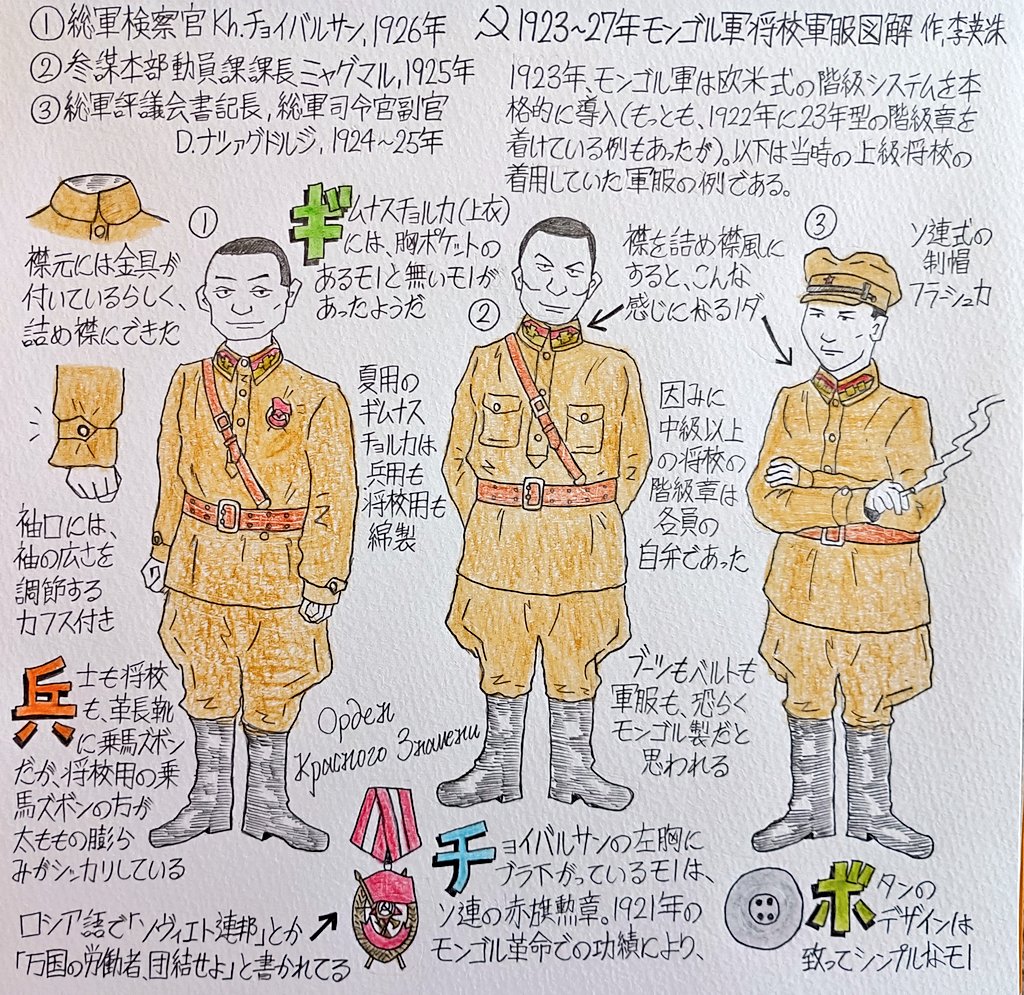 ①総軍検察官Kh.チョイバルサン,1926年
②参謀本部動員課課長ミャグマル,1925年
③総軍評議会書記長,総軍司令官副官
D.ナツァグドルジ,1924〜25年
☭1923〜27年モンゴル軍将校軍服図解 作,李英洙
1923年、モンゴル軍は欧米式の階級システムを本
格的に導入(もっとも、1922年に23年型の階級章を
着けている例もあったが)。以下は当時の上級将校の
着用していた軍服の例である。
襟元には金具が
付いているらしく、
詰め襟にできた
①
ギムナスチョルカ(上衣)
には、胸ポケットの
あるモノと無いモノが
あったようだ
②
襟を詰め襟風に
すると、こんな
感じになるノダ
③
ソ連式の
制帽
フラーシュカ
夏用の
ギムナス
チョルカは
兵用も
将校用も
綿製
因みに
中級以上
の将校の
階級章は
各員の
自弁であった
袖口には、
袖の広さを
調節する
カフス付き
兵士も将校
も、革長靴
に乗馬ズボン
だが、将校用の乗
馬ズボンの方が
太ももの膨ら
みがシッカリしている
Орден
Красного Знамени
ブーツもベルトも
軍服も、恐らく
モンゴル製だと
思われる
ロシア語で「ソヴィエト連邦」とか
「万国の労働者、団結せよ」と書かれてる
チョイバルサンの左胸に
ブラ下がっているモノは、
ソ連の赤旗勲章。1921年の
モンゴル革命での功績により、
ボタンの
デザインは
致ってシンプルなモノ